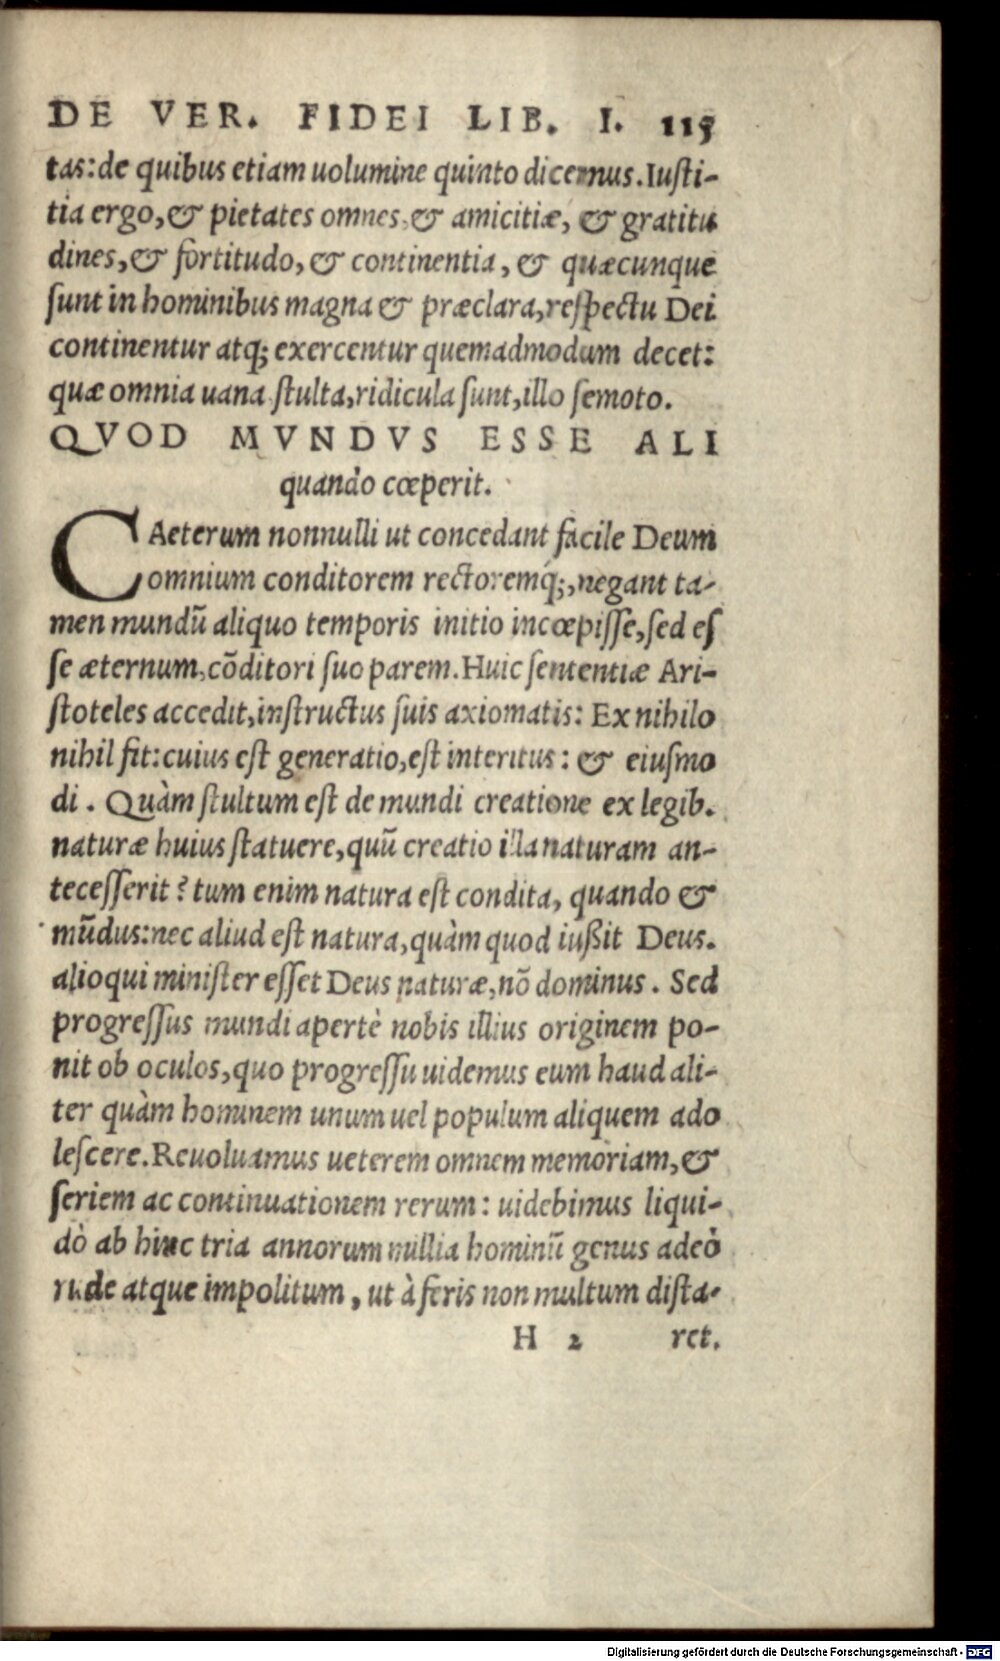 DE VER. FIDEI LIB. I. 115
tas: de quibus etiam uolumine quinto dicemus. Iusti-
tia ergo, & pietates omnes, & amicitiæ, & gratitu
dines, & fortitudo, & continentia, & quæcunque
ſunt in hominibus magna & præclara, reſpectu Dei
continentur atq; exercentur quemadmodum decet:
quæ omnia uana ſtulta, ridicula ſunt, illo ſemoto.
QVOD MVNDVS ESSE ALI
quando cœperit.
CAeterum nonnulli ut concedant facile Deum
omnium conditorem rectoremq́;, negant ta-
men mundũ aliquo temporis initio incœpiſſe, ſed eſ
ſe æternum, cõditori ſuo parem. Huic ſententiæ Ari-
ſtoteles accedit, inſtructus ſuis axiomatis: Ex nihilo
nihil fit: cuius eſt generatio, eſt interitus: & eiuſmo
di. Quàm ſtultum eſt de mundi creatione ex legib.
naturæ huius ſtatuere, quũ creatio illa naturam an-
teceſſerit? tum enim natura eſt condita, quando &
mũdus: nec aliud eſt natura, quàm quod iußit Deus.
alioqui miniſter eſſet Deus naturæ, nõ dominus. Sed
progreſſus mundi apertè nobis illius originem po-
nit ob oculos, quo progreſſu uidemus eum haud ali-
ter quàm hominem unum uel populum aliquem ado
leſcere. Reuoluamus ueterem omnem memoriam, &
ſeriem ac continuationem rerum: uidebimus liqui-
dò ab hinc tria annorum millia hominũ genus adeò
rude atque impolitum, ut à feris non multum diſta-
H 2 ret.
Digitalisierung gefördert durch die Deutsche Forschungsgemeinschaft - DFG